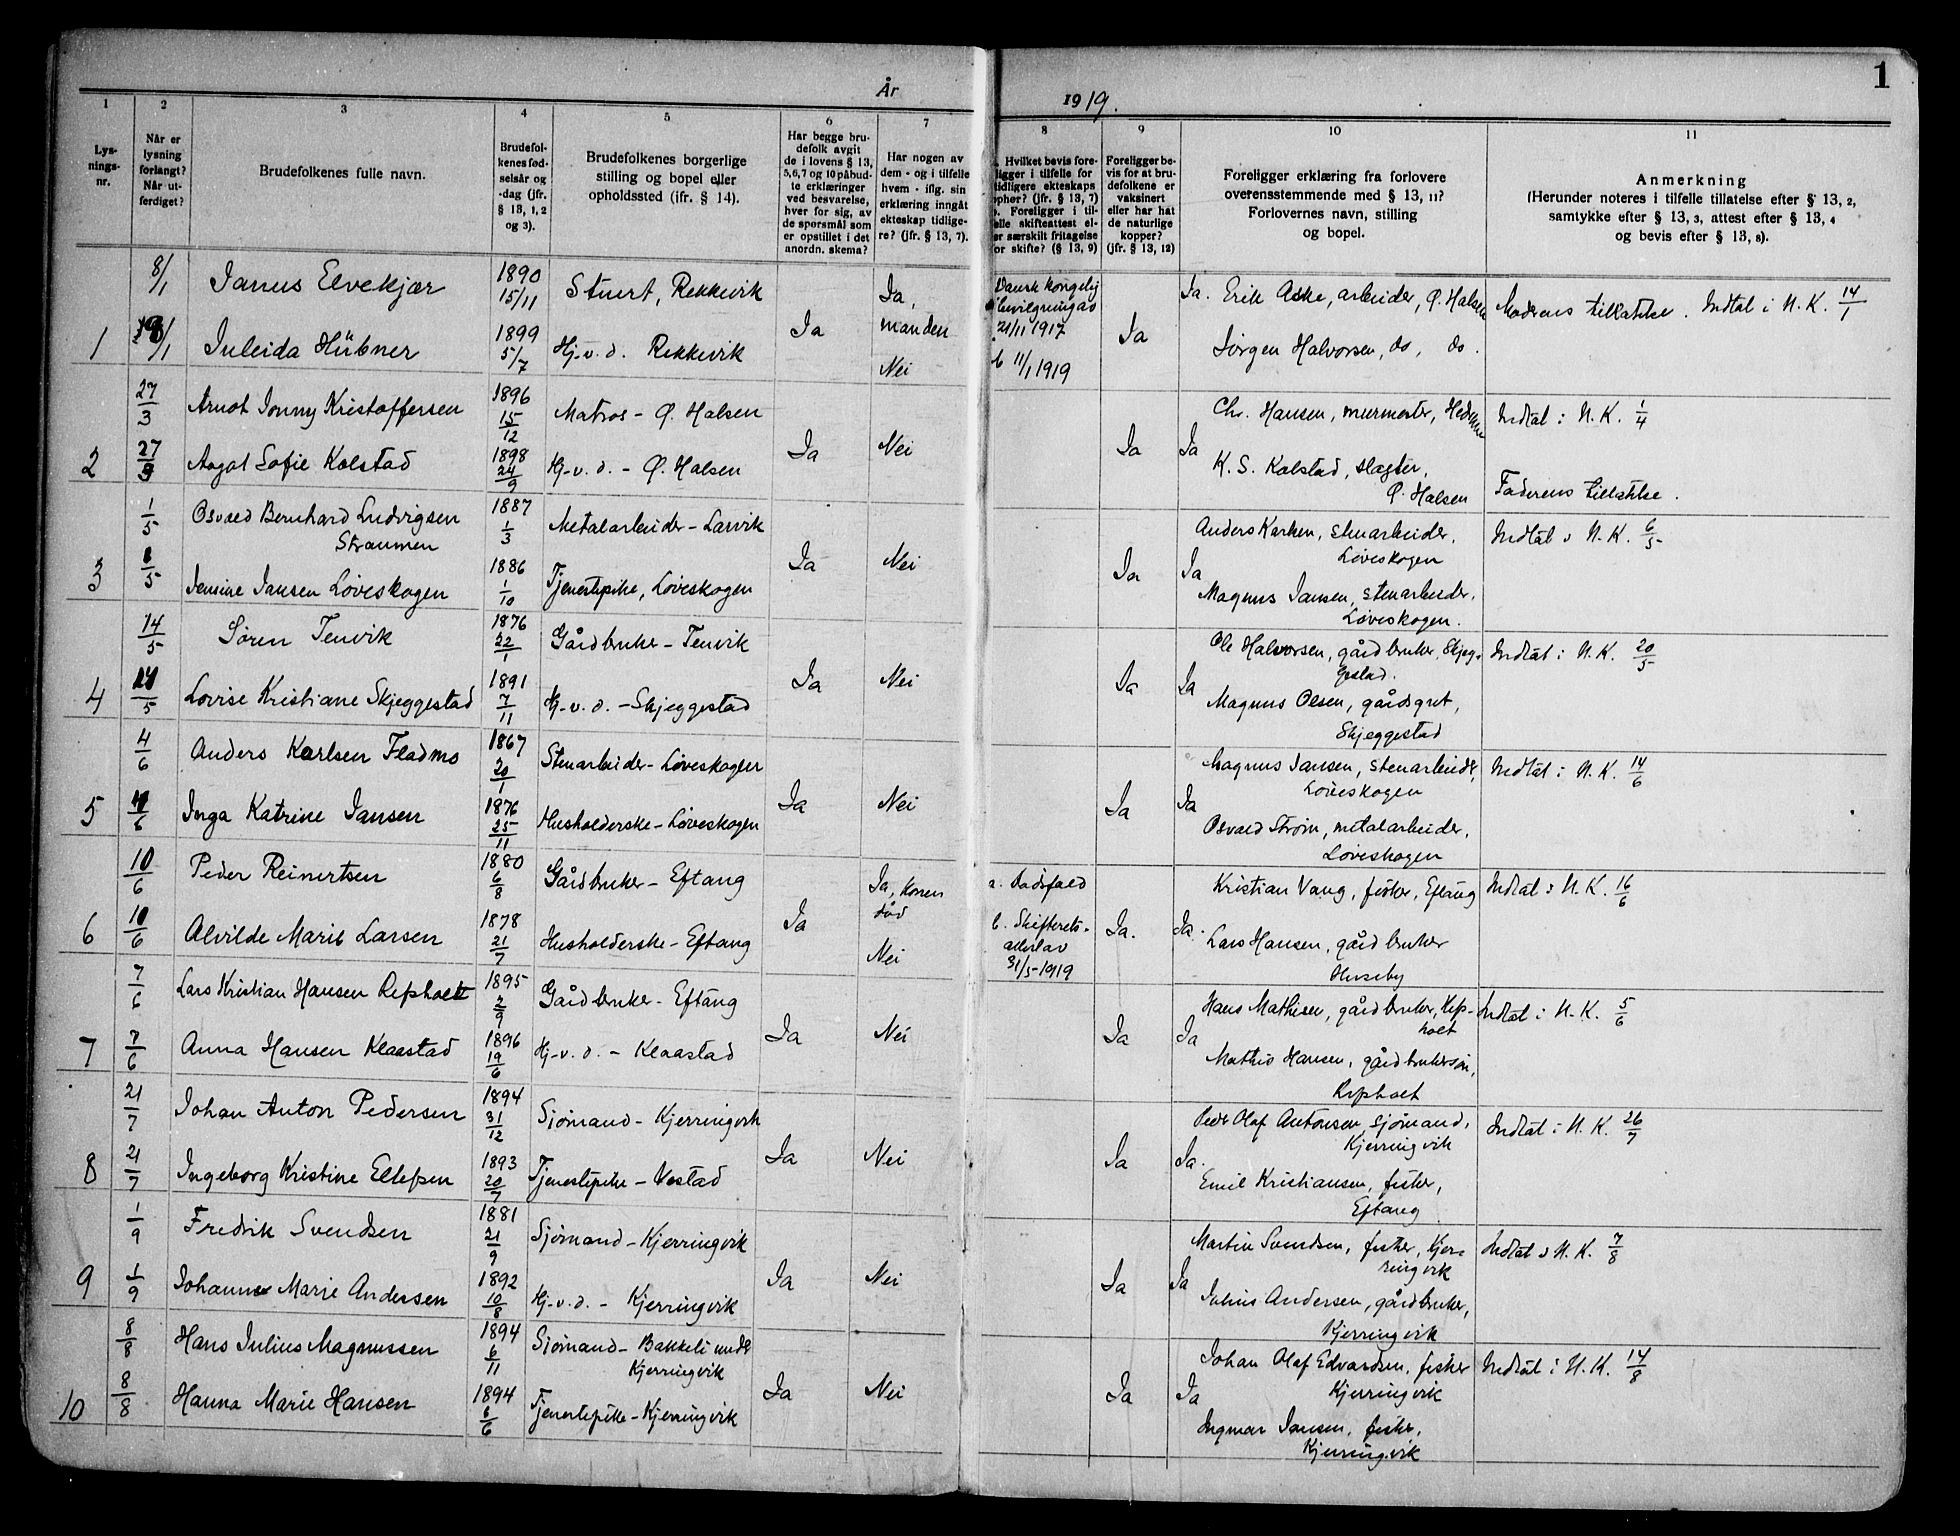 1
År
1919.
1
2
3
4
5
6
7
8
9
10
11
Lys-
nings-
nr.
Når er
lysning
forlangt?
Når ut-
ferdiget?
Brudefolkenes fulle navn.
Brudefol-
kenes fød-
selsår og
-dag (jfr.
§ 13, 1, 2
og 3).
Brudefolkenes borgerlige
stilling og bopel eller
opholdssted (ifr. § 14).
Har begge bru-
defolk avgit
de i lovens § 13,
5,6,7 og 10 påbud-
te erklæringer
ved besvarelse,
hver for sig, av
de spørsmål som
er opstillet i det
anordn. skema?
Har nogen av
dem - og i tilfelle
hvem - iflg. sin
erklæring inngåt
ekteskap tidlige-
re? (jfr. § 13, 7).
Hvilket bevis fore-
ligger i tilfelle for
tidligere ekteskaps
ophør? (jfr. § 13, 7)
b. Foreligger i til-
felle skifteattest el-
er særskilt fritagelse
for skifte? (§ 13, 9)
Foreligger be-
vis for at bru-
defolkene er
vaksinert
eller har hat
de naturlige
kopper?
(jfr. § 13, 12)
Foreligger erklæring fra forlovere
overensstemmende med § 13, 11?
Forlovernes navn, stilling
og bopel.
Anmerkning
(Herunder noteres i tilfelle tillatelse efter § 13, 2,
samtykke efter § 13, 3, attest efter § 13, 4
og bevis efter § 13, 8).
8/1 Janus Elvekjær 1890 15/11 Stuert, Rekkevik Ja, manden Dansk kongelig bevilgning av 21/11 1917 Ja. Erik Aske, arbeider, Ø. Halsen Moderens tillatelse. Indtat i N. K. 14/1
1 /1 Juleida Hübner 1899 5/7 Hj.v.d. Rekkevik Ja Nei b 11/1 1919 Ja Jørgen Halvorsen, do, do.
27/3 Arnot Jonny Kristoffersen 1896 15/12 Matros - Ø. Halsen Chr. Hansen, murmester, Indtat i N. K. 1/4
2 27/3 Aagot Sofie Kolstad 1898 24/9 Hj.v.d. - Ø. Halsen Ja Nei Ja Ja K. S. Kolstad, slagter, Ø. Halsen Faderens tillatelse.
1/5 Osvald Bernhard Ludvigsen Straumen 1887 1/3 Metalarbeider - Larvik Anders Karlsen, stenarbeider, Løveskogen Indtat i N. K. 6/5
3 /5 Jensine Jansen Løveskogen 1886 1/10 Tjenestepike, Løveskogen Ja Nei Ja Ja Magnus Jansen, stenarbeider, Løveskogen.
14/5 Søren Tenvik 1876 22/1 Gårdbruker - Tenvik Ole Halvorsen, gårdbruker, Skjeggestad. Indtat i N. K. 20/5
4 14/5 Lovise Kristiane Skjeggestad 1891 7/11 Hj.v.d. - Skjeggestad Ja Nei Ja Ja Magnus Olsen, gårdsgut, Skjeggestad
4/6 Anders Karlsen Fladmo 1867 20/1 Stenarbeider - Løveskogen Magnus Jansen, stenarbeider, Løveskogen Indtat i N. K. 14/6
5 4/6 Inga Katrine Jansen 1876 25/11 Husholderske - Løveskogen Ja Nei Ja Ja Osvald Strøm, metalarbeider, Løveskogen
10/6 Peder Reinertsen 1880 6/8 Gårdbruker - Eftang Ja, konen død a. Dødsfald Kristian Vang, fisker, Eftang Indtat i N. K. 16/6
6 10/6 Alvilde Marie Larsen 1878 21/7 Husholderske - Eftang Ja Nei b. Skifterets- av 31/5-1919 Ja. Ja. Lars Hansen, gårdbruker Huseby
7/6 Lars Kristian Hansen Repholt 1895 2/9 Gårdbruker - Eftang Hans Mathisen, gårdbruker, Rep-holt Indtat i N. K. 5/6
7 7/6 Anna Hansen Klaastad 1896 19/6 Hj.v.d. - Klaastad Ja Nei Ja Ja Mathis Hansen, gårdbrukersøn, Repholt
21/7 Johan Anton Pedersen 1894 31/12 Sjømand - Kjerringvik Peder Olaf Antonsen, sjømand, Kjerringvik Indtat i N. K. 26/7
8 21/7 Ingeborg Kristine Ellefsen 1893 20/7 Tjenestepike - Vestad Ja Nei Ja Ja. Emil Kristiansen, fisker, Eftang
1/9 Fredrik Svendsen 1881 21/9 Sjømand - Kjerringvik Martin Svendsen, fisker, Kjerringvik Indtat i N. K. 7/8
9 1/9 Johanne Marie Andersen 1892 10/8 Hj.v.d. - Kjerringvik Ja Nei Ja Ja Julius Andersen, gårdbruker, Kjerringvik
8/8 Hans Julius Magnussen 1894 6/11 Sjømand - Bakkeli under Kjerringvik Johan Olaf Edvardsen, fisker Kjerringvik Indtat i N. K. 14/8
10 8/8 Hanna Marie Hansen 1894 6/6 Tjenestepike - Kjerringvik Ja Nei Ja Ja Ingmar Jansen, fisker, Kjerringvik